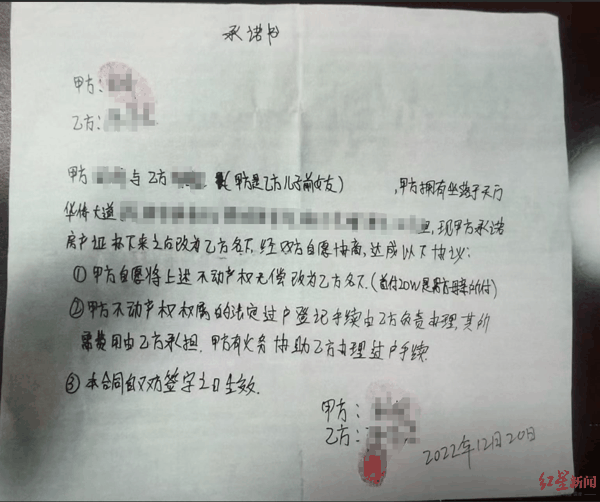 承诺书
甲方：
乙方：
甲方 与乙方 (甲方是乙方儿子前女友) ,甲方拥有坐落于天门
华侨大道 ,现甲方承诺
房产证办下来之后改为乙方名下.经双方自愿协商,达成以下协议：
①甲方自愿将上述不动产权无偿改为乙方名下.(首付20W是乙方母亲所付)
②甲方不动产权权属的法定过户登记手续由乙方负责办理,其所
需费用由乙方承担.甲方有义务协助乙方办理过户手续.
③本合同自双方签字之日生效.
甲方：
乙方：
2022年12月20日
红星新闻